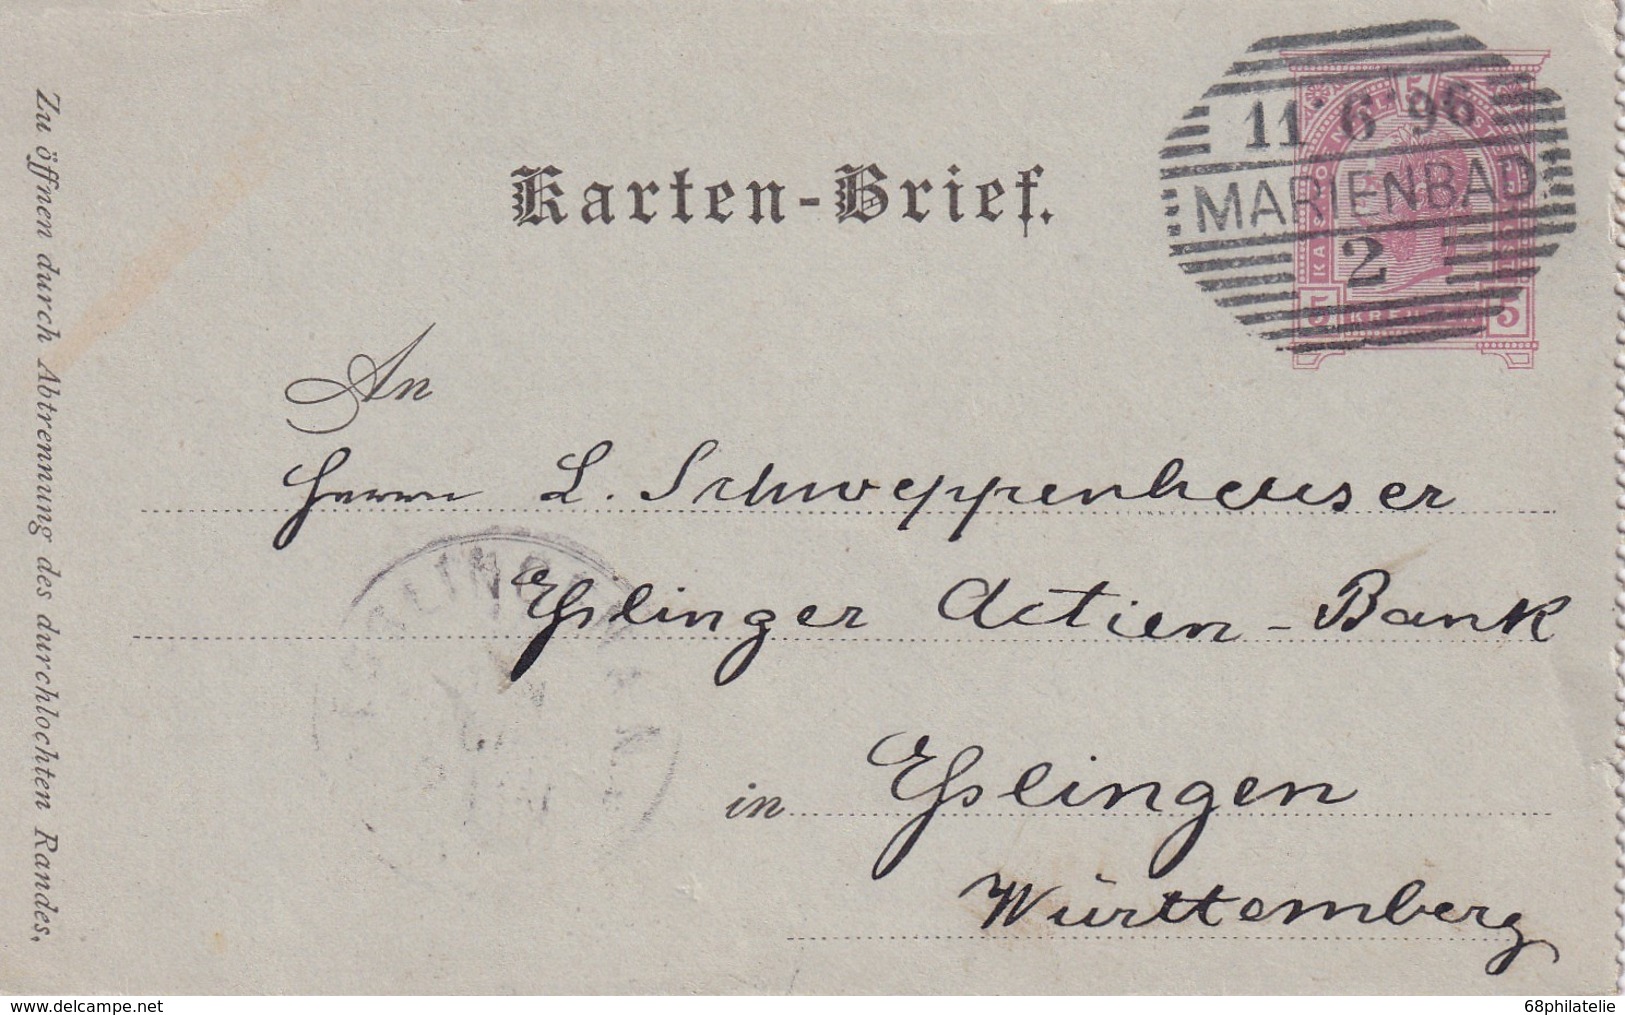 Karten-Brief.
11 6 96
MARIENBAD
2
5
5 KREUZER 5
An
Herrn L. Schweppenheuser
Esslinger Actien-Bank
in Esslingen
Württemberg
Zu öffnen durch Abtrennung des durchlochten Randes.
delcampe.net
68philatelie